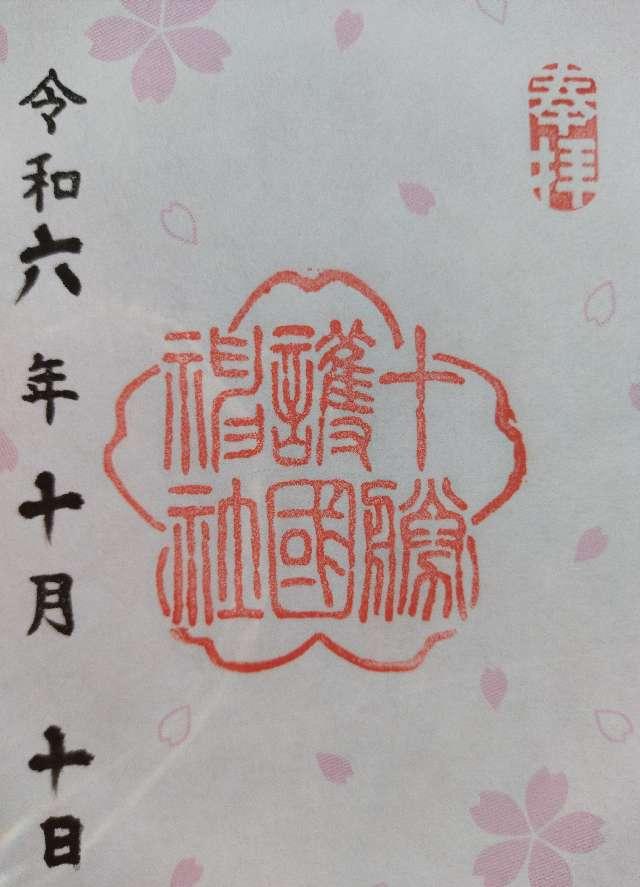 奉拝
十勝
護國
神社
令和六年十月十日